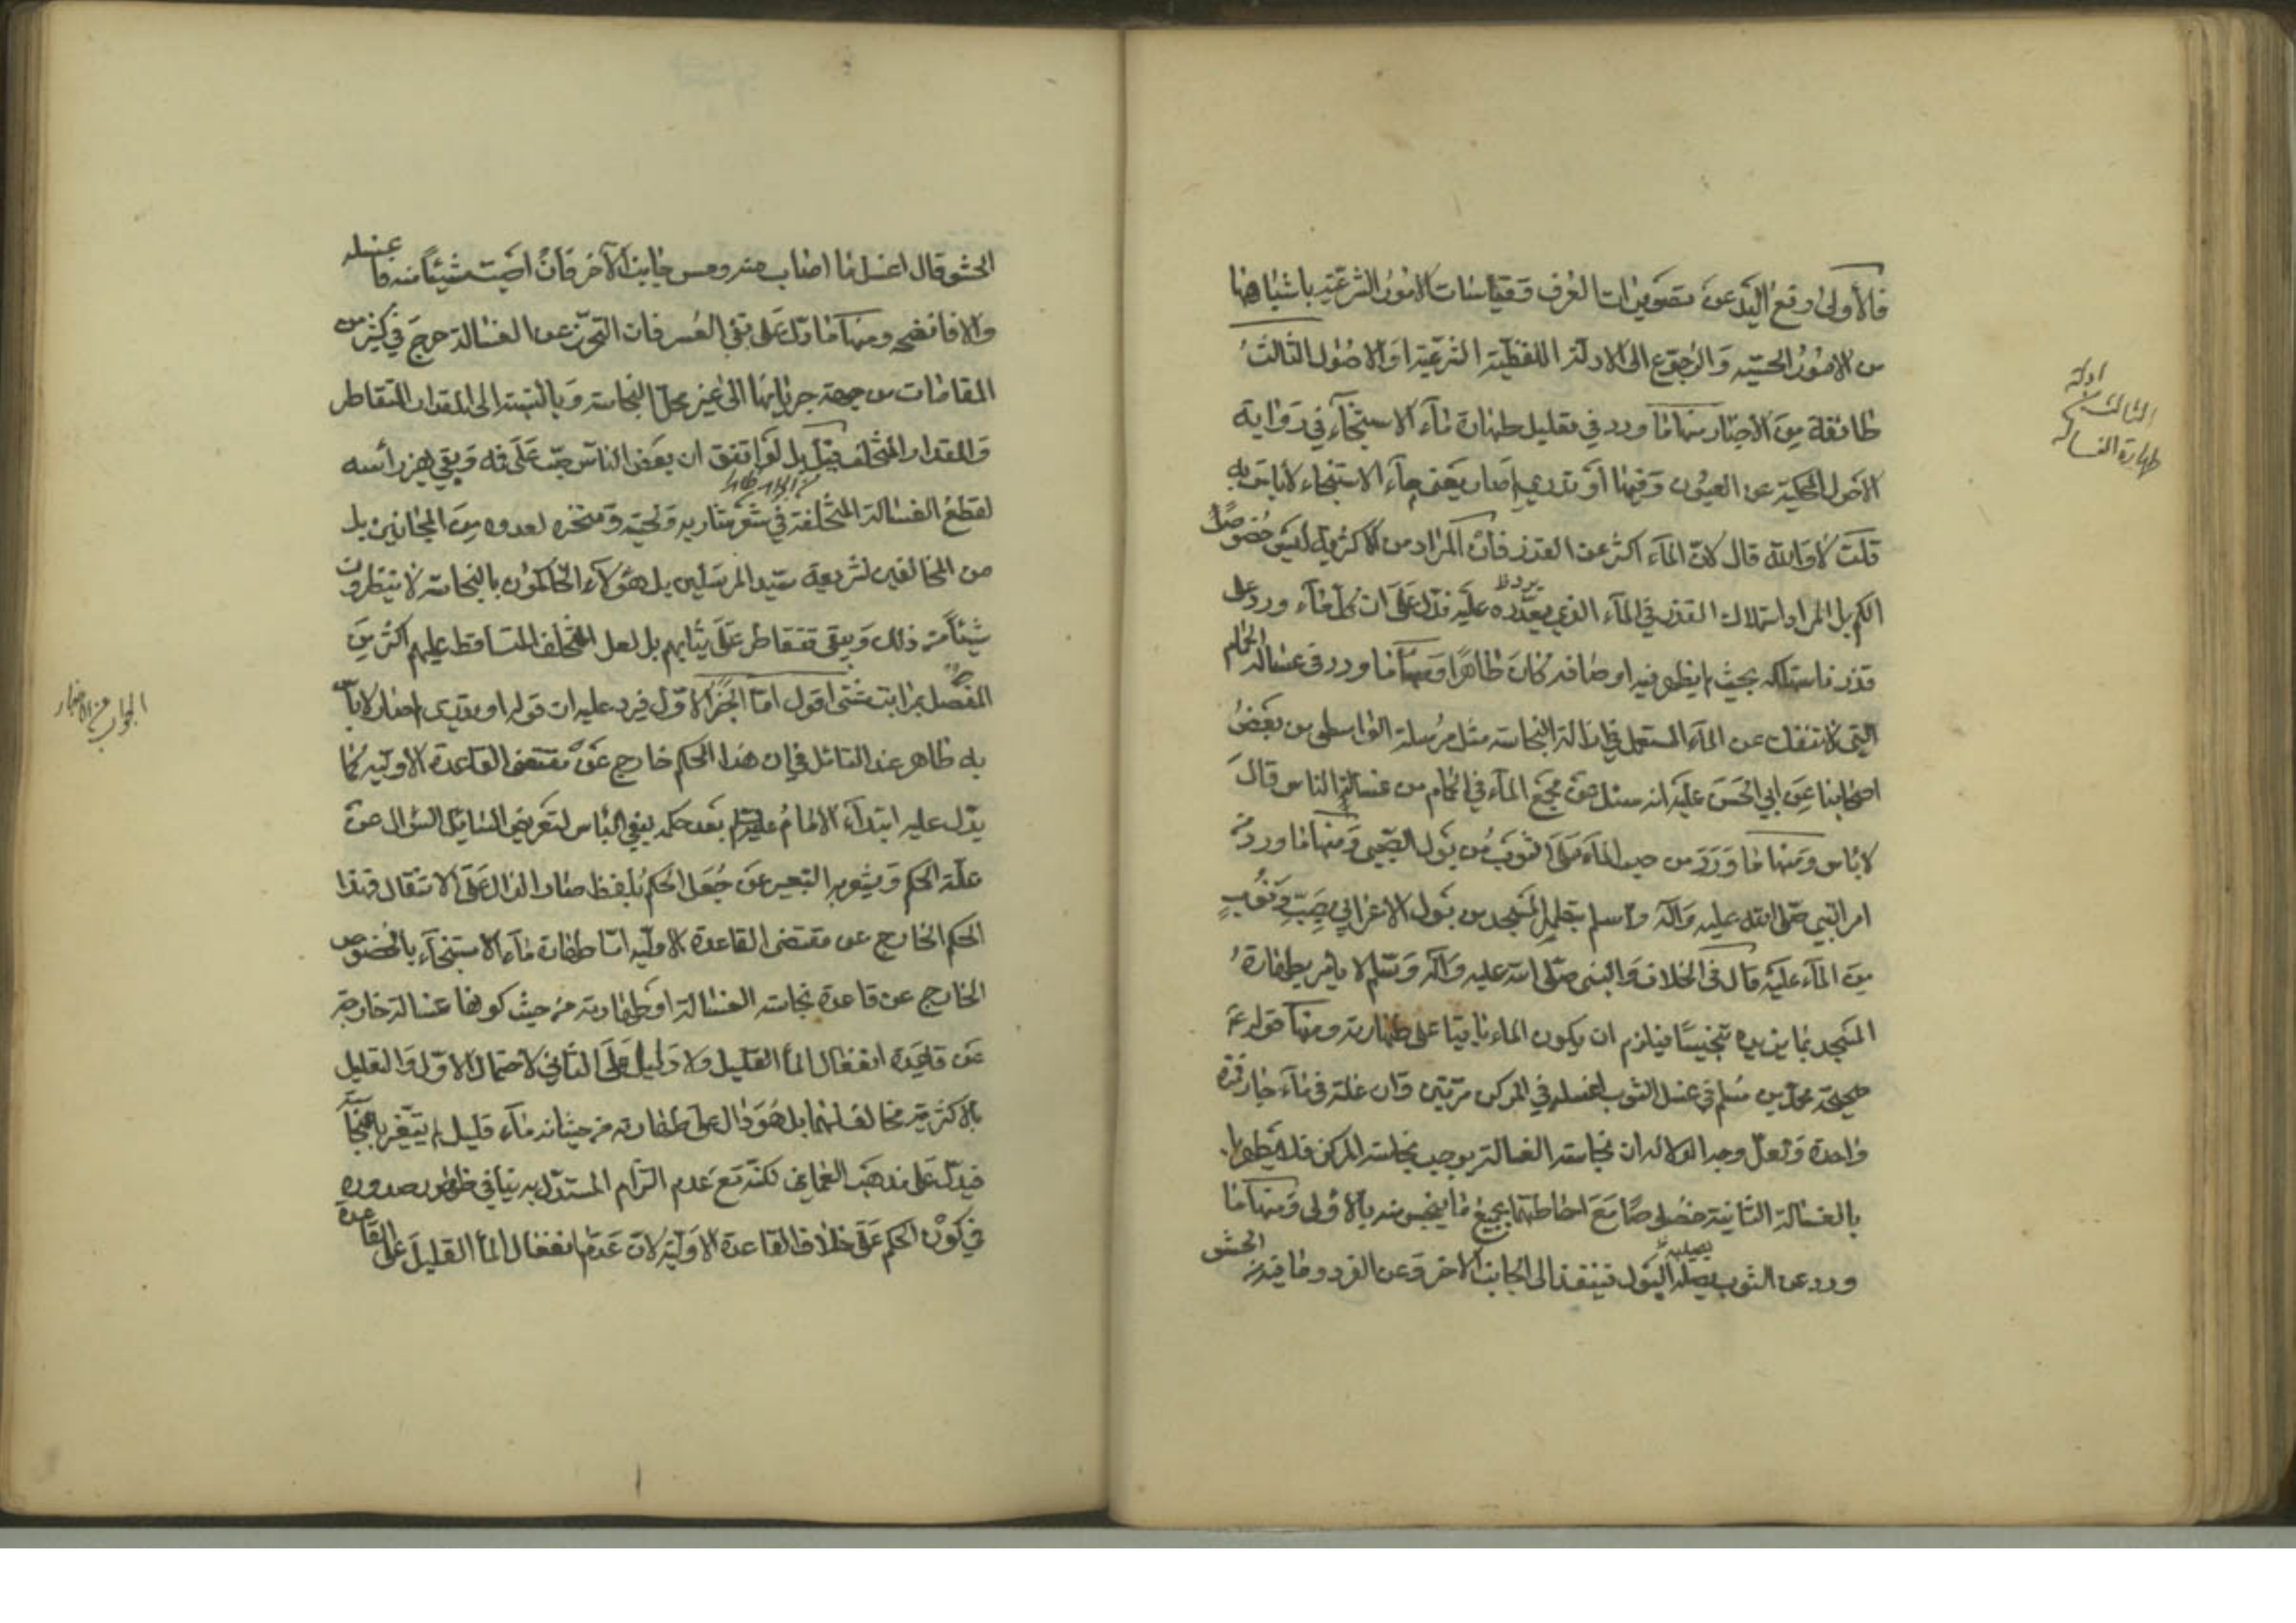 فالأولى رفع اليد عن تصويرات العرف وقياسات الامور الشرعية باشباهها
من الامور الحسيه والرجوع الى الادلة اللفظية الشرعية او الاصول الثالث
طائفة من الاخبار منها ما ورد في تعليل طهارة ماء الاستنجاء في رواية
الاحول المحكية عن العيون وفيها او تدري لم صار يعني ماء الاستنجاء لا باس به
قلت لا والله قال لان الماء اكثر من القذر فان المراد من الاكثرية ليس خصوص
الكم بل المراد استهلاك القذر في الماء الذي يرد عليه فدل على ان كل ماء ورد على
قذر فاستهلكه بحيث لم يظهر فيه اوصافه كان طاهرا ومنها ما ورد في غسالة الحمام
التي لا تنفك عن الماء المستعمل في ازالة النجاسة مثل مرسلة الواسطي عن بعض
اصحابنا عن ابي الحسن عليه انه سئل عن مجمع الماء في الحمام من غسالة الناس قال
لا باس ومنها ما ورد من صب الماء على الثوب من بول الصبي ومنها ما ورد من
امر النبي صلى الله عليه وآله وسلم بتطهير المسجد من بول الاعرابي بصب ذنوب
من الماء عليه قال في الخلاف والنبي صلى الله عليه وآله وسلم لا يامر بطهارة
المسجد بما يزيده تنجيسا فيلزم ان يكون الماء باقيا على طهارته ومنها قوله ع
صحيحة محمد بن مسلم في غسل الثوب اغسله في المركن مرتين وان غسلته في ماء جار فمرة
واحدة ولعل وجه الدلالة ان نجاسة الغسالة توجب نجاسة المركن فلا يطهر
بالغسالة الثانية خصوصا مع احاطتها بجميع ما ينجس منه بالاولى ومنها ما
ورد عن الثوب يصيبه البول فينفذ الى الجانب الاخر وعن الفرو وما فيه من الحشو
الثالث من ادلة
طهارة الغسالة
الحشو قال اغسل ما اصاب منه ومس جانب الآخر فان اصبت شيئا منه فاغسله
والا فانضحه ومنها ما دل على نفي العسر فان التحرز عن الغسالة حرج في كثير من
المقامات من جهة جريانها الى غير محل النجاسة وبالنسبة الى المقدار المتقاطر
والمقدار المتخلف قيل بل لو اتفق ان بعض الناس صب على فيه وبقي يهز رأسه
لقطع الغسالة المتخلفة في شعر شاربه ولحيته ومنخره لعدوه من المجانين بل
من المخالفين لشريعة سيد المرسلين بل هؤلاء الحاكمون بالنجاسة لا ينتظرون
شيئا من ذلك ويبقى تتقاطر على ثيابهم بل لعل المتخلف المتساقط عليهم اكثر من
المنفصل بمراتب شتى اقول اما الخبر الاول فيرد عليه ان قوله او تدري لم صار لا باس
به ظاهر عند التامل في ان هذا الحكم خارج عن مقتضى القاعدة الاولية كما
يدل عليه ابتداء الامام عليه السلم بعد حكمه بنفي الباس لتعريض السائل السؤال عن
علة الحكم ويشعر به التعبير عن جعل الحكم بلفظ صار الدال على الانتقال وهذا
الحكم الخارج عن مقتضى القاعدة الاولية اما طهارة ماء الاستنجاء بالخصوص
الخارج عن قاعدة نجاسة الغسالة او طهارته من حيث كونها غسالة خارجة
عن قاعدة انفعال الماء القليل ولا دليل على الثاني لاحتمال الاول والتعليل
بالاكثرية مخالف لهما بل هو دال على طهارته من حيث انه ماء قليل لم يتغير بالنجاسة
فيدل على مذهب العماني لكنه مع عدم التزام المستدل به ينافي ظهور صدوره
في كون الحكم على خلاف القاعدة الاولية لان عدم انفعال الماء القليل على القاعدة
الجواب عن الاخبار